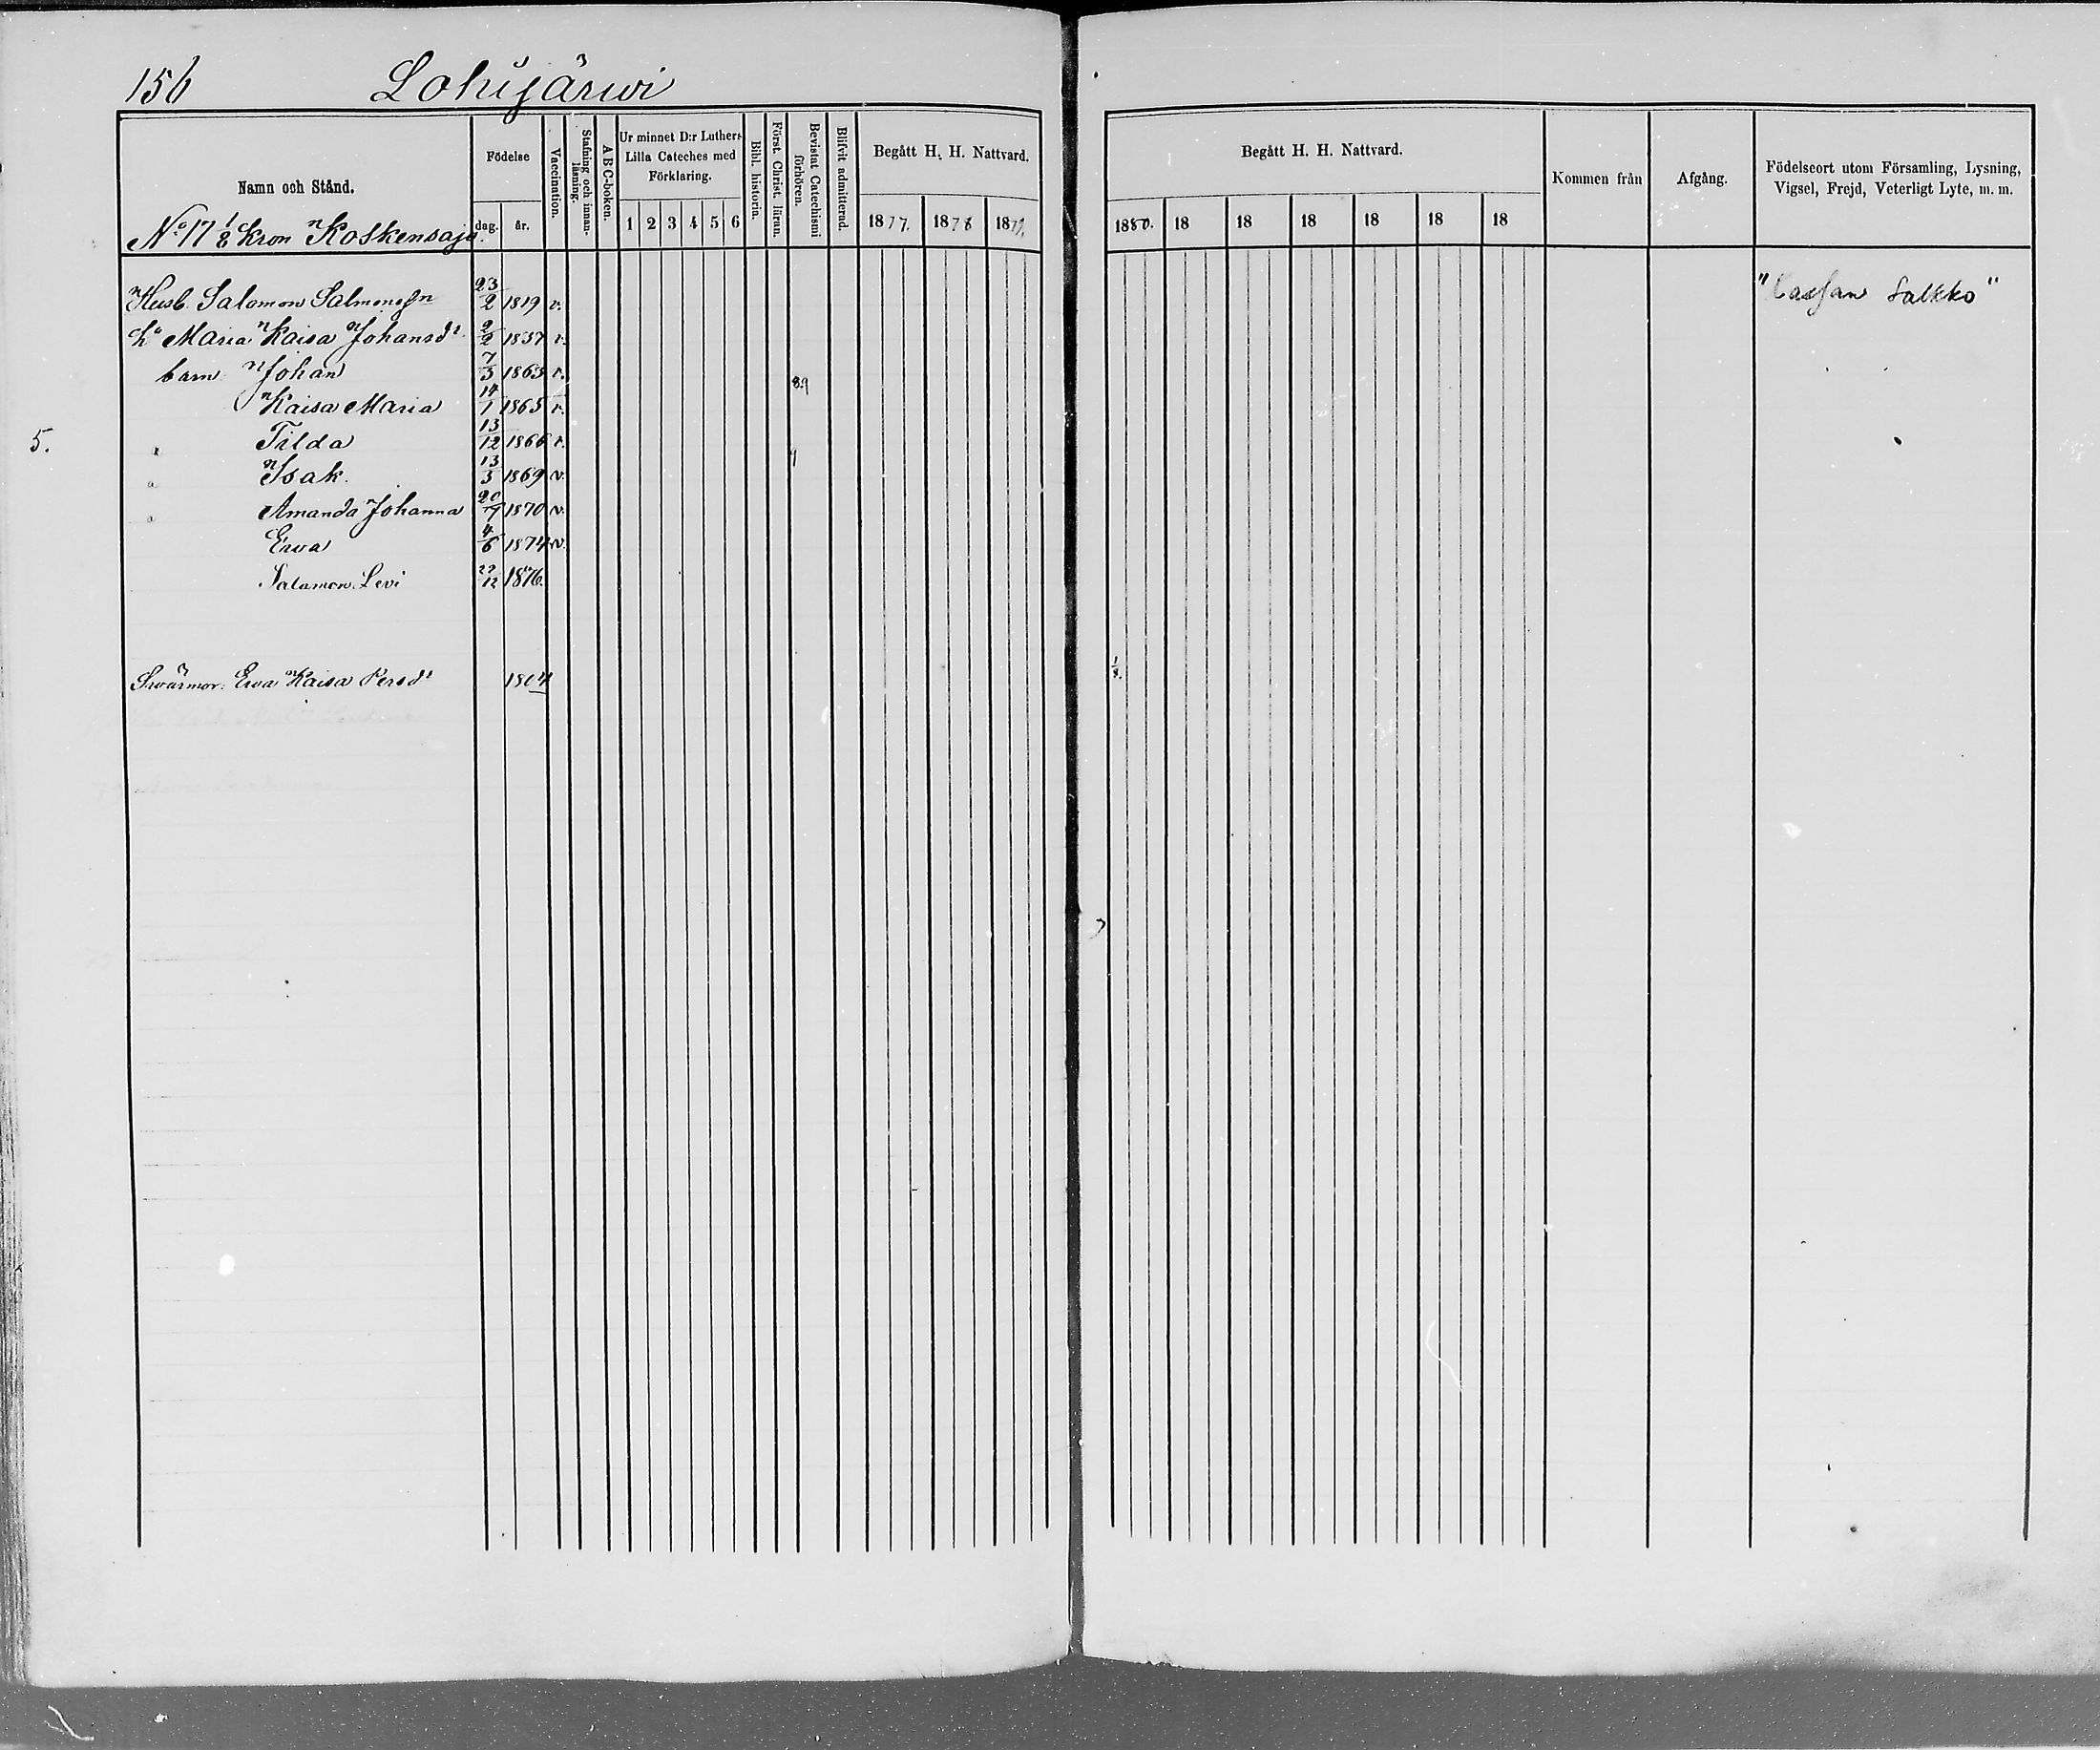 156 Lohijärwi
Namn och Stånd.
Födelse
dag. år.
Vaccination.
Stafning och innanläsning.
A B C-boken.
Ur minnet D:r Luthers Lilla Cateches med Förklaring.
1 2 3 4 5 6
Bibl. historin.
Först. Christ. läran.
Bevistat Catechismi förhören.
Blifvit admitterad.
Begått H. H. Nattvard.
1877. 1878 1879.
Begått H. H. Nattvard.
1880. 18 18 18 18 18 18
Kommen från
Afgång.
Födelseort utom Församling, Lysning, Vigsel, Frejd, Veterligt Lyte, m. m.
No 17 1/8 Kron Koskensajo
Husb. Salomon Salmonssn 23/2 1819 v. Salkko"
hu Maria Kaisa Johansdr 2/2 1837 v.
barn Johan 7/3 1863 v. 8.9
Kaisa Maria 14/1 1865 v.
5. " Tilda 13/12 1866 v.
" Isak 13/3 1869 v.
" Amanda Johanna 20/9 1870 v.
Ewa 4/6 1874 v.
Salamon Levi 22/12 1876.
Swärmor. Ewa Kaisa Persdr 1804 1/8.